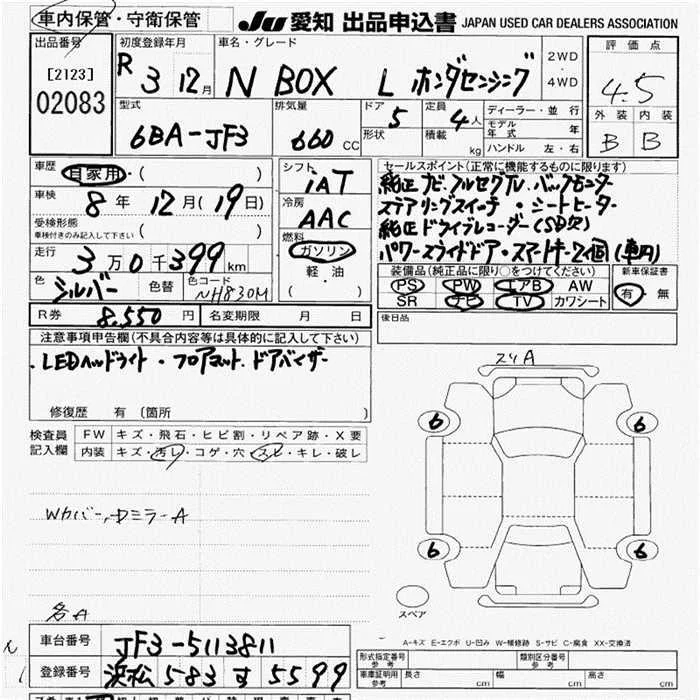 車内保管・守衛保管
JU 愛知 出品申込書 JAPAN USED CAR DEALERS ASSOCIATION
出品番号 初度登録年月 車名・グレード 評価点
[2123] R 3 12月 N BOX L ホンダセンシング 2WD・4WD 4.5
02083
型式 排気量 ドア 5 定員 4人 ディーラー・並行 外装 内装
6BA-JF3 660cc 形状 積載 kg モデル年式 年 B B
ハンドル 左・右
車歴 自家用・( ) シフト iAT セールスポイント(正常に機能するものに限ります)
車検 8年 12月(19日) 冷房 AAC 純正ナビ.フルセグTV.バックモニター
受検形態 ( ) ステアリングスイッチ・シートヒーター
車検付きのみ記入して下さい 燃料 純正ドライブレコーダー(SD欠)
走行 3万0千399km ガソリン パワースライドドア・スマートキー2個(車内)
軽・油 装備品(純正品に限り○をつけて下さい) 新車保証書
色 シルバー 色替 色コード NH830M ( ) PS PW エアB AW 有・無
SR ナビ TV カワシート
R券 8.550円 名変期限 月 日 後日品
注意事項申告欄(不具合内容等は具体的に記入して下さい)
.LEDヘッドライト・フロアマット.ドアバイザー
スリA
修復歴 有 (箇所 )
検査員記入欄 FW キズ・飛石・ヒビ割・リペア跡・X要
内装 キズ・汚レ・コゲ・穴・スレ・キレ・破レ
6 6
Wカバー,中ミラーA
6 6
各A
スペア
A-キズ E-エクボ U-凹み W-補修跡 S-サビ C-腐食 XX-交換済
車台番号 JF3-5113811
登録番号 浜松 583 す 5599
形式指定番号 参考 類別区分番号 参考
車庫証明用 参考 長さ cm 幅 cm 高さ cm